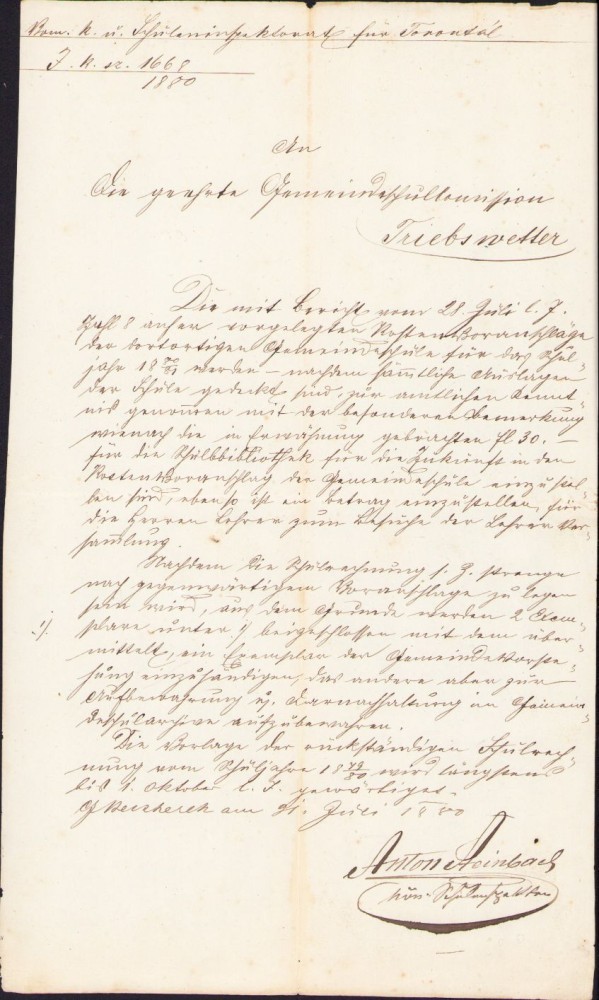 Vom. k. u. Schuleninspektorat für Torontál
Z. K. sz. 1668
1880
An
Die geehrte Gemeindeschulkomission
Triebswetter
Die mit Bericht vom 28. Juli l. J.
Zahl 8 anher vorgelegten Kosten Voranschläge
der dortortigen Gemeindeschule für das Schul-
jahr 18 80/81 werden – nachdem sämmtliche Auslagen
der Schule gedeckt sind, zur amtlichen Kennt-
nis genommen mit der besonderen Bemerkung
wienach die in Erwähnung gebrachten fl 30. –
für die Schulbibliothek für die Zukunft in den
Kosten Voranschlag der Gemeindeschule einzustel-
len sind, ebenso ist ein Betrag einzustellen, für
die Herren Lehrer zum Besuche der Lehrer Ver-
sammlung.
Nachdem die Schulrechnung s. Z. strenge
nach gegenwärtigem Voranschlage zu legen
sein wird, aus dem Grunde werden 2 Exem-
plare unter ·/. beigeschlossen mit dem über-
·/.
mittelt, ein Exemplar der Gemeinde Vorste-
hung einzuhändigen, das andere aber zur
Aufbewahrung u. Darnachhaltung im Gemein-
deschularchive aufzubewahren.
Die Vorlage der rückständigen Schulrech-
nung vom Schuljahre 18 79/80 wird längstens
bis 1. Oktober l. J. gewärtiget.
Gr Becskerek am 31. Juli 1880
Anton Steinbach
kön. Schulinspektor